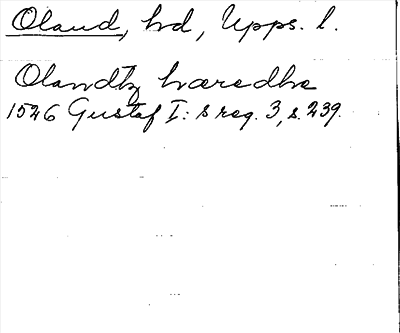 Oland, hd, Upps. l.
Olandtz hæredhe
1526 Gustaf I:s reg. 3, s. 239.